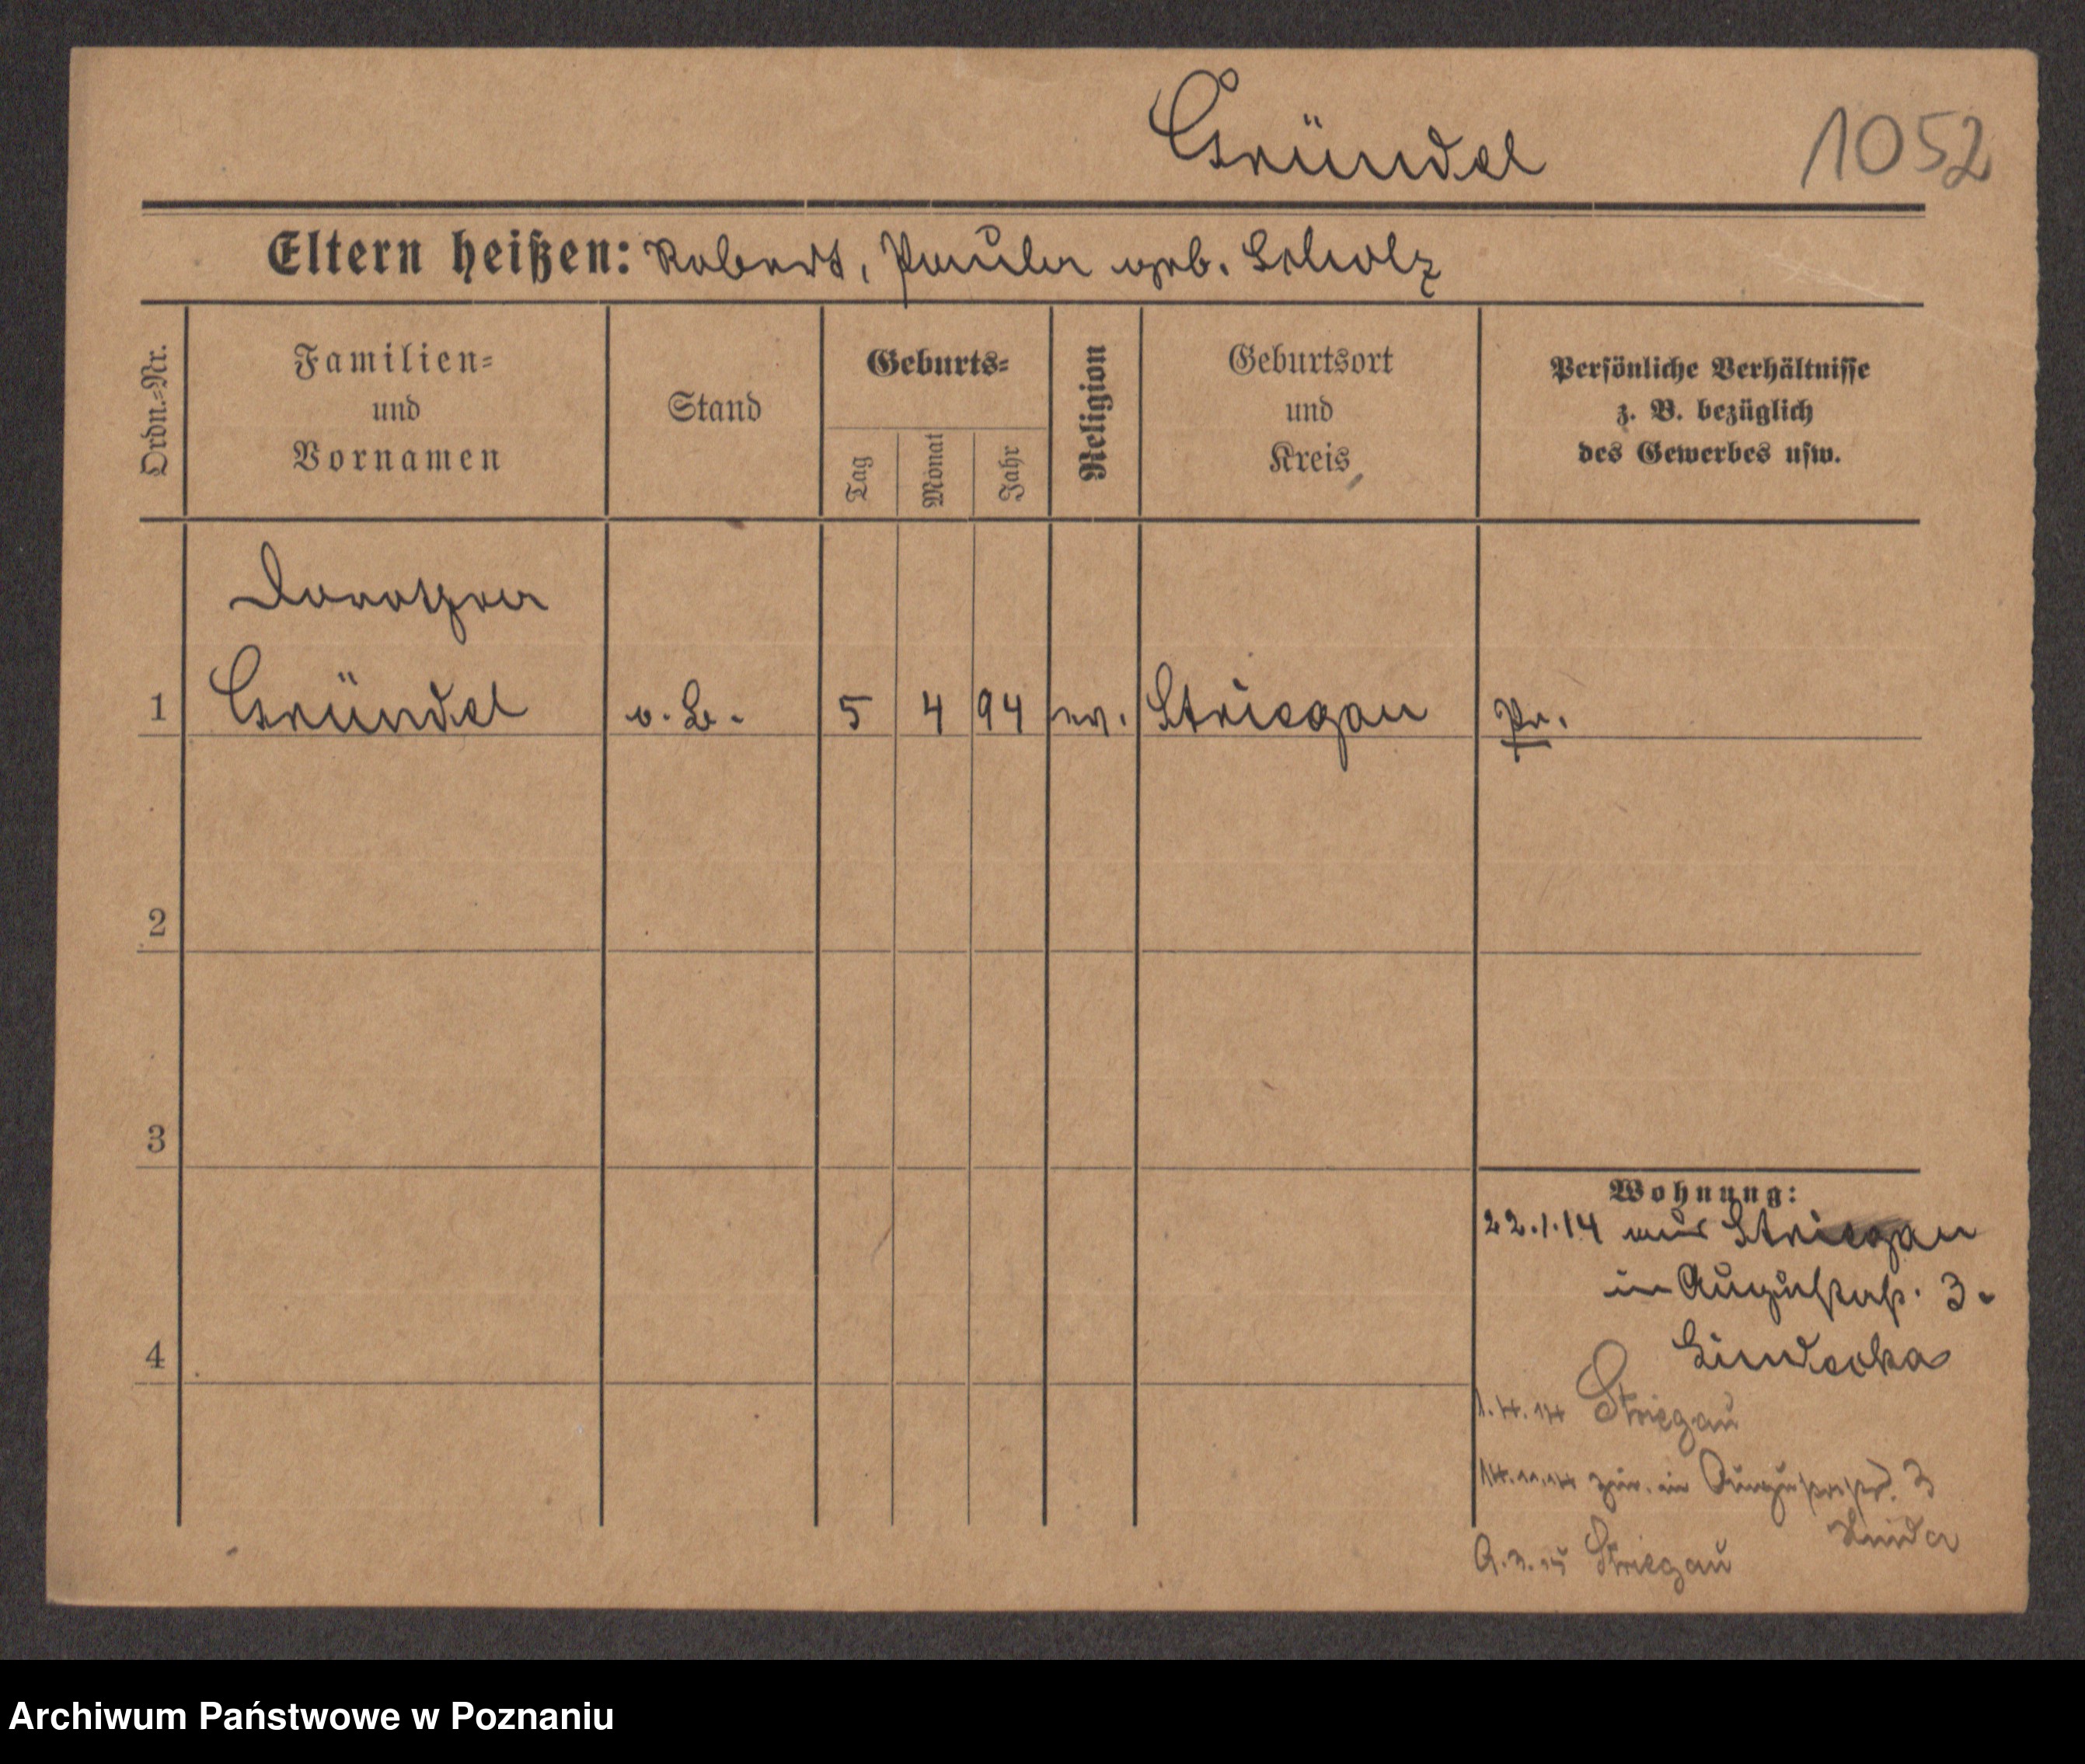 Gründel
1052
Eltern heißen: Robert, Paula geb. Scholz
Ordn.-Nr.
Familien-
und
Vornamen
Stand
Geburts-
Tag
Monat
Jahr
Religion
Geburtsort
und
Kreis
Persönliche Verhältnisse
z. B. bezüglich
des Gewerbes usw.
Dorothea
1 Gründel o. B. 5 4 94 ev. Striegau Pr.
2
3
4
Wohnung:
22.1.14 aus Striegau
in Augustastr. 3.
1.4.14 Striegau
14.11.14 zur. in Augustastr. 3
Striegau
Archiwum Państwowe w Poznaniu